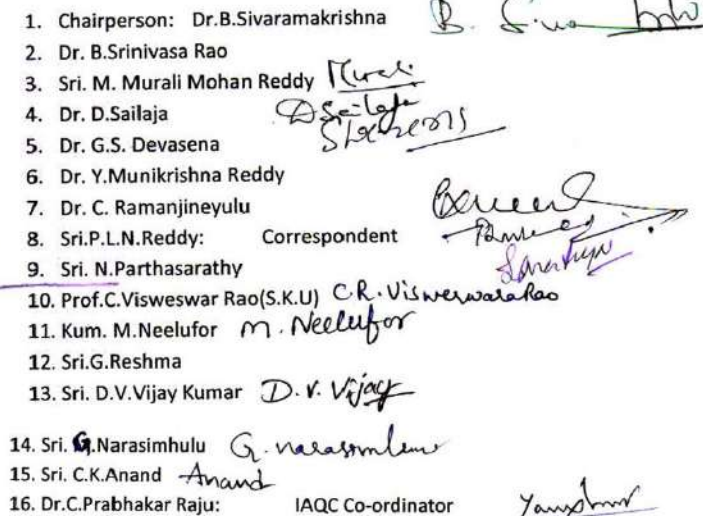 1. Chairperson: Dr.B.Sivaramakrishna B. Siva
2. Dr. B.Srinivasa Rao
3. Sri. M. Murali Mohan Reddy Murali
4. Dr. D.Sailaja D Sailaja
5. Dr. G.S. Devasena
6. Dr. Y.Munikrishna Reddy
7. Dr. C. Ramanjineyulu
8. Sri.P.L.N.Reddy: Correspondent
9. Sri. N.Parthasarathy
10. Prof.C.Visweswar Rao(S.K.U) C.R. VisweswaraRao
11. Kum. M.Neelufor M. Neelufor
12. Sri.G.Reshma
13. Sri. D.V.Vijay Kumar D.V. Vijay
14. Sri. G.Narasimhulu G. narasimhulu
15. Sri. C.K.Anand Anand
16. Dr.C.Prabhakar Raju: IAQC Co-ordinator